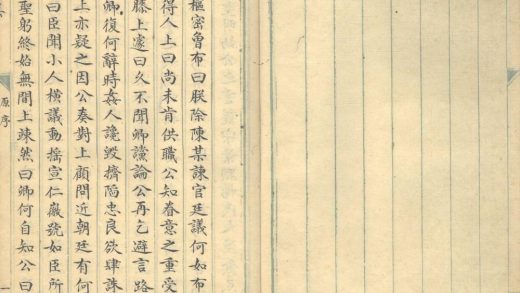 樞密魯布曰朕除陳某諫官廷議何如布
得人上曰尚未肯供職公知眷意之重受
膝上遽曰久不聞卿讜論公再乞避言路
卿復何辭時姦人讒毀擠陷忠良欲肆誅
上亦疑之因公奏對上顧問近朝廷有何
曰臣聞小人橫議動搖宣仁徽號如臣所
聖躬終始無間上竦然曰卿何自知公曰
原序
一